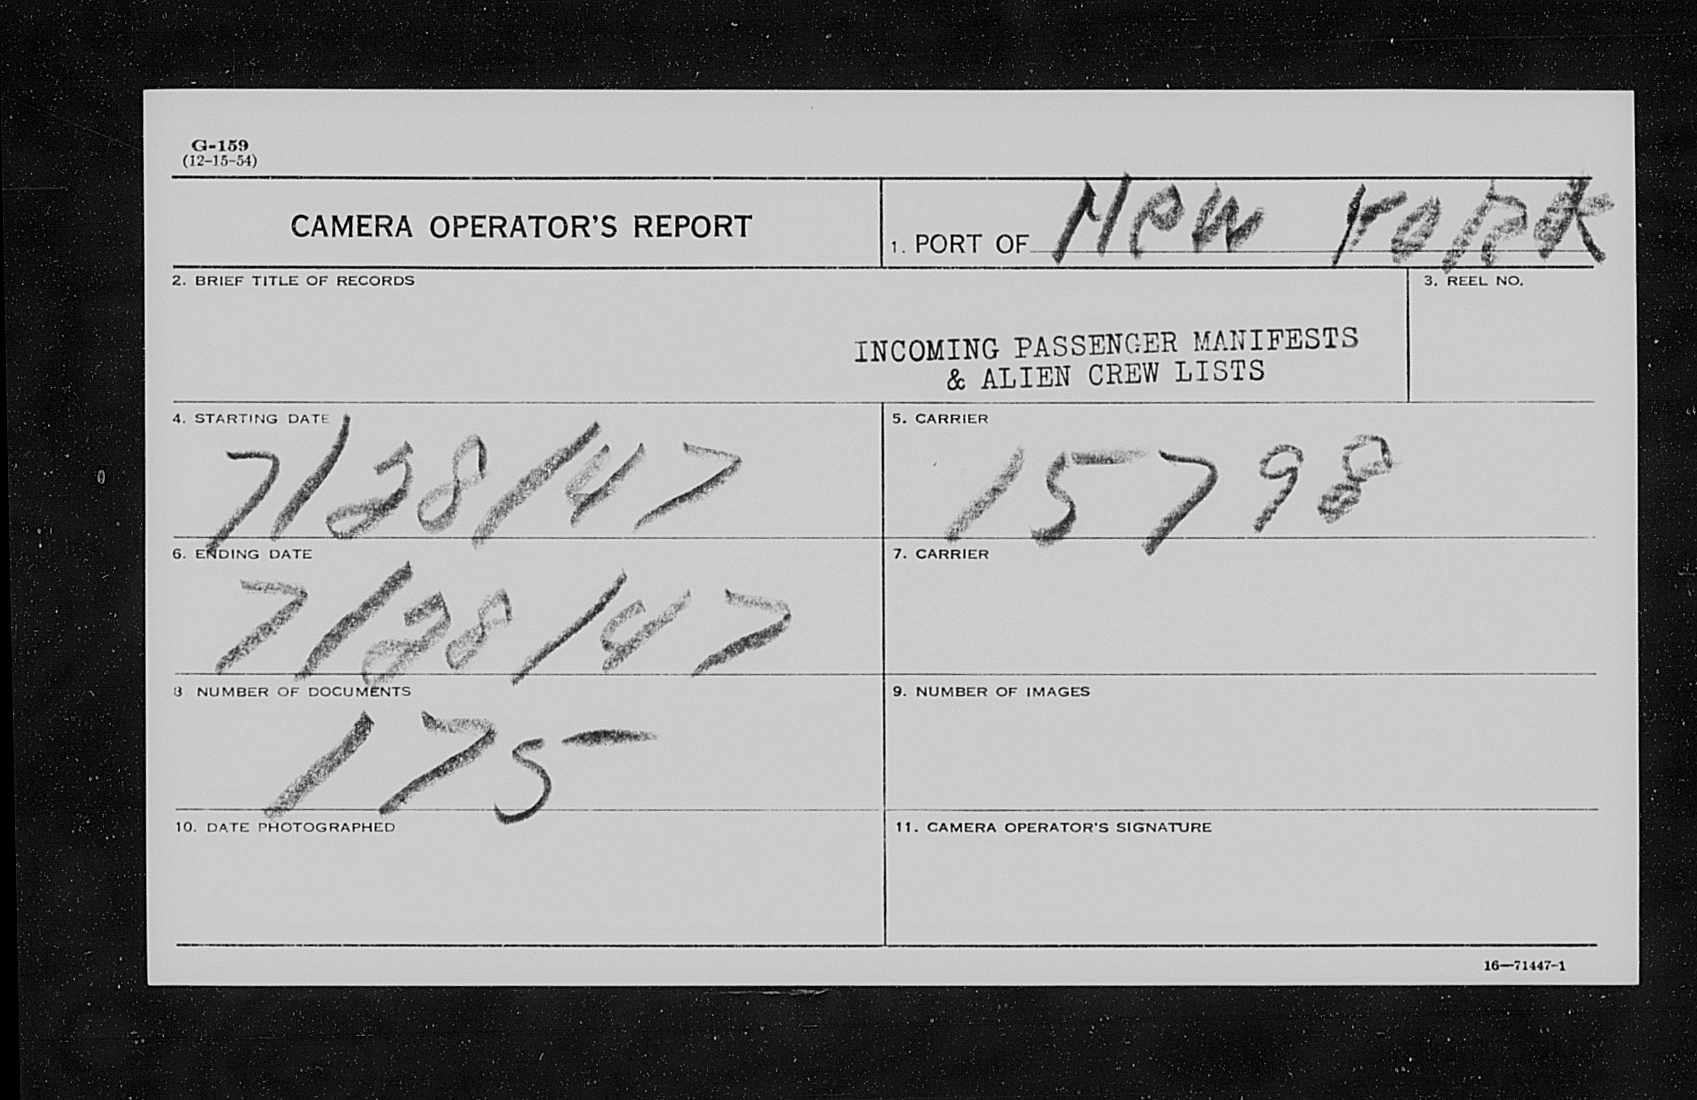 G-159
(12-15-54)
CAMERA OPERATOR'S REPORT
1. PORT OF New York
2. BRIEF TITLE OF RECORDS
3. REEL NO.
INCOMING PASSENGER MANIFESTS
& ALIEN CREW LISTS
4. STARTING DATE
7/28/47
5. CARRIER
15798
6. ENDING DATE
7/28/47
7. CARRIER
8 NUMBER OF DOCUMENTS
175
9. NUMBER OF IMAGES
10. DATE PHOTOGRAPHED
11. CAMERA OPERATOR'S SIGNATURE
16—71447-1